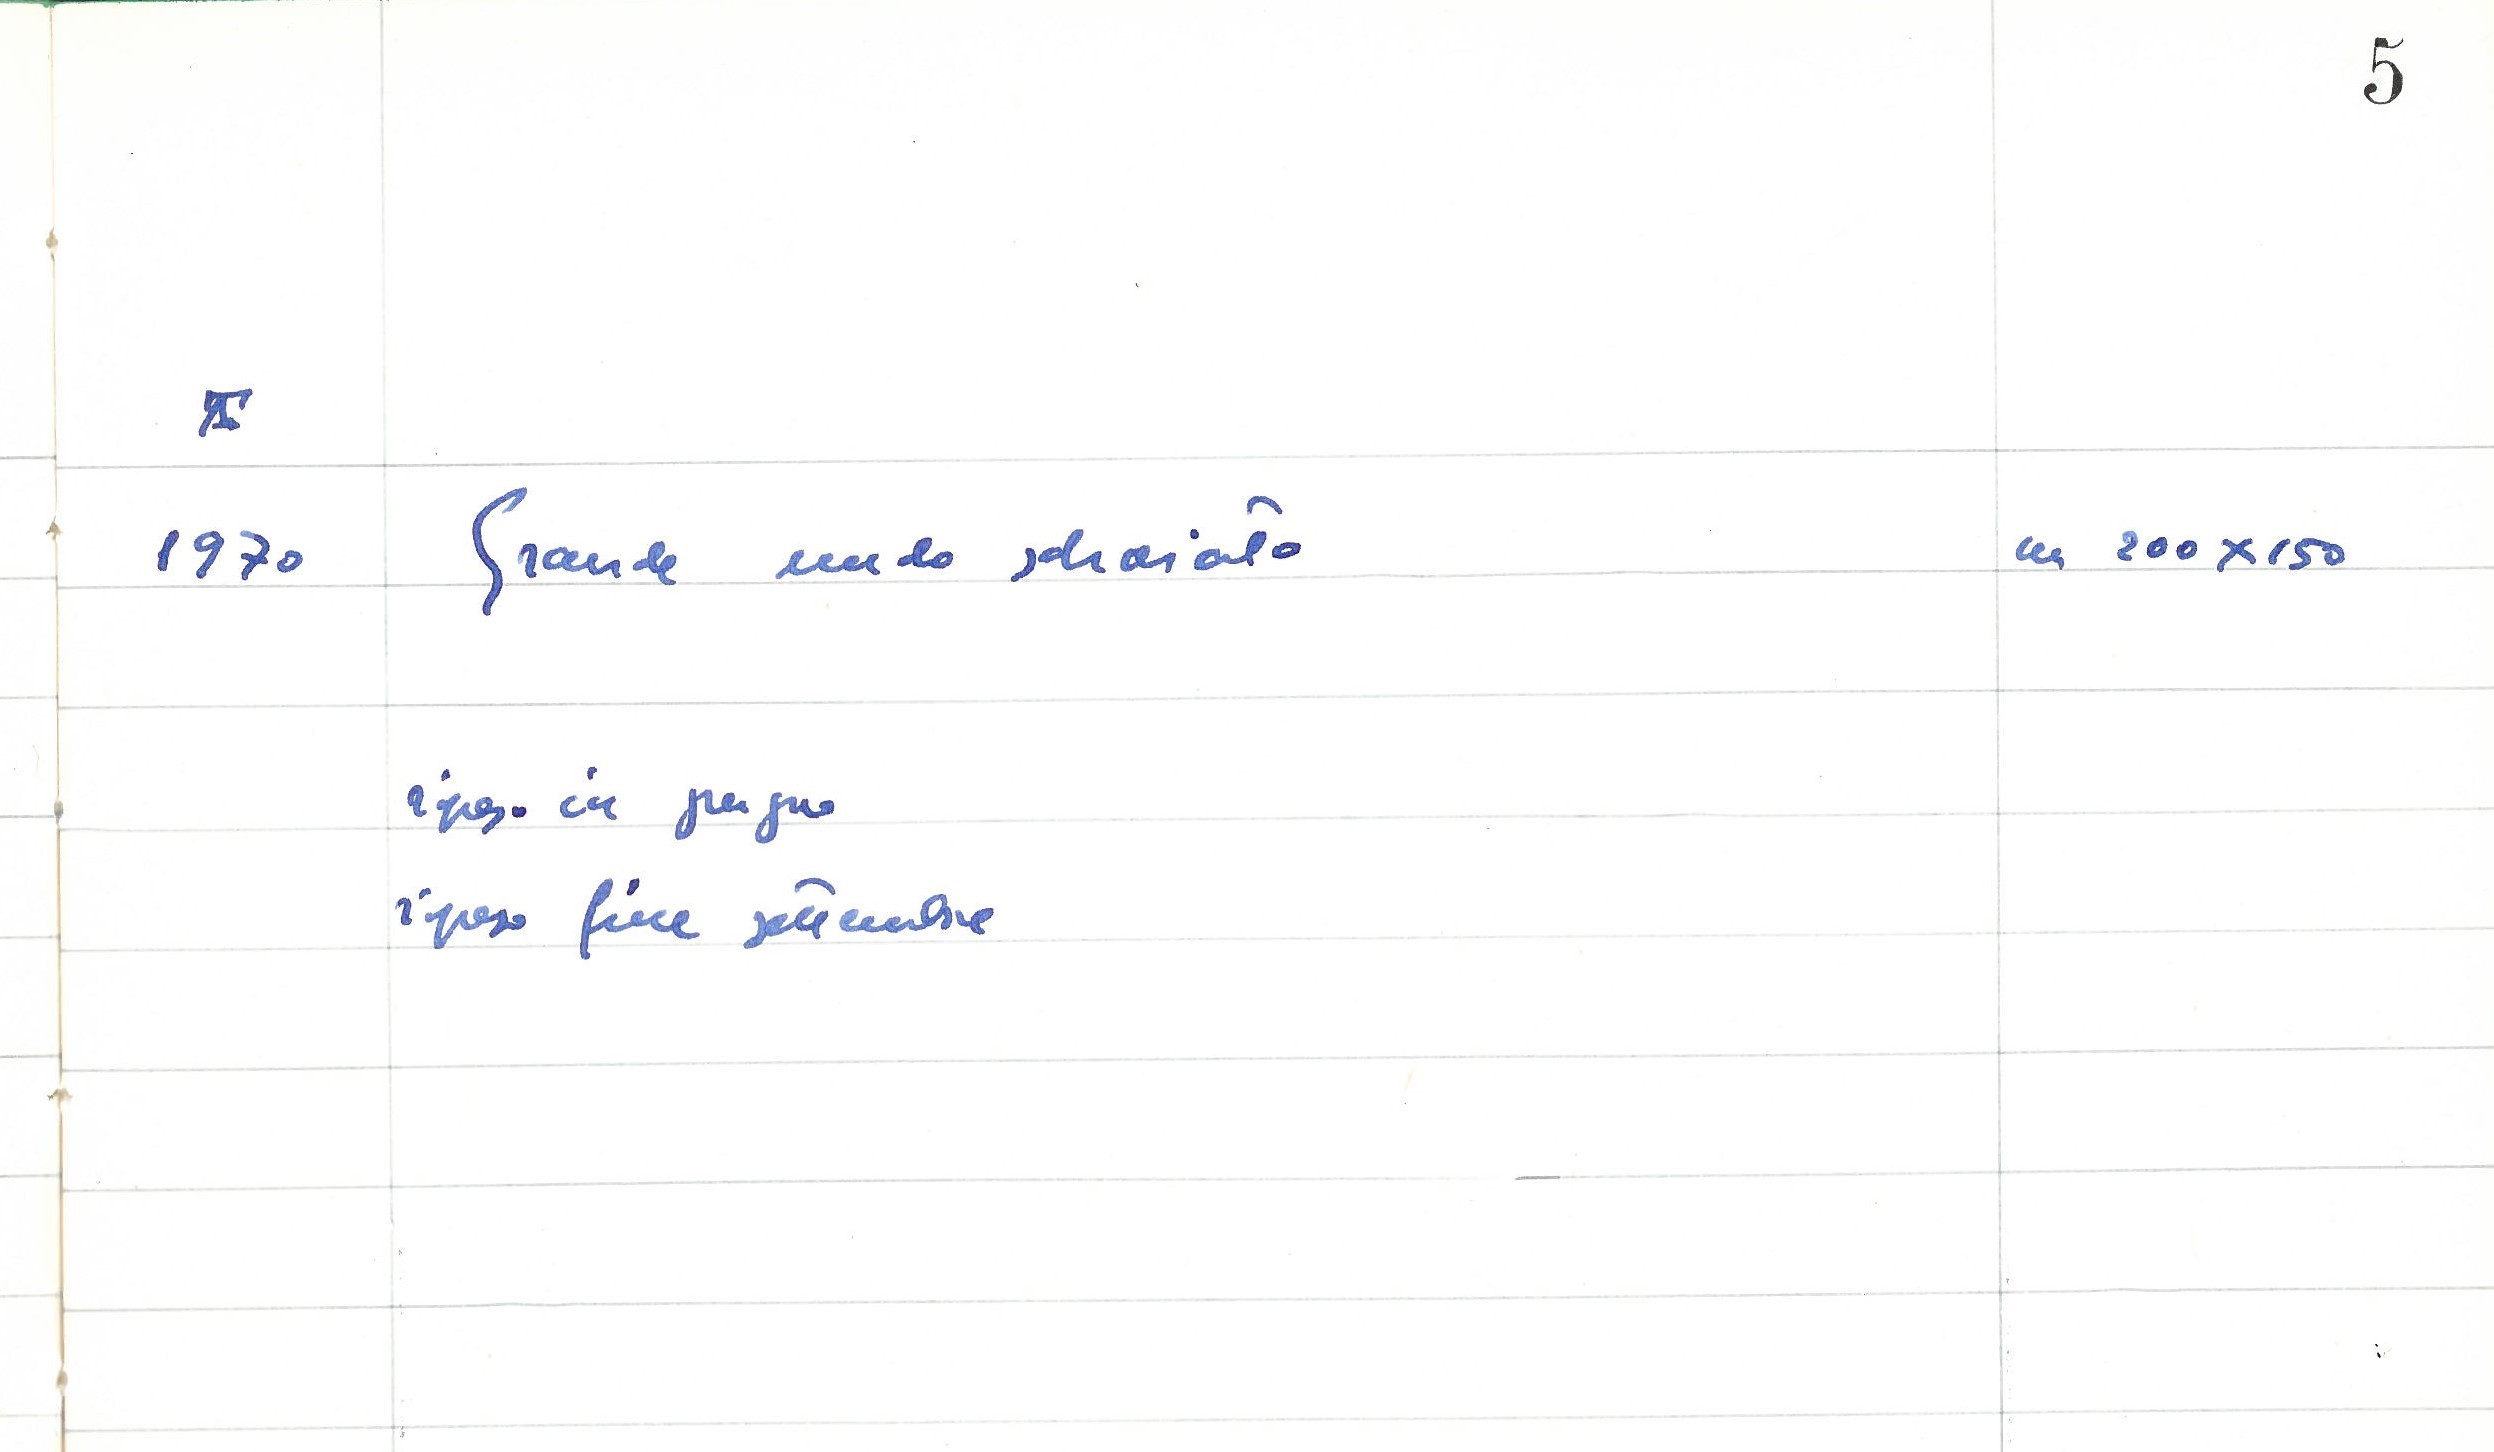 5
II
1970 Grande nudo sdraiato cm 200 x 150
ripreso in giugno
ripreso fine settembre